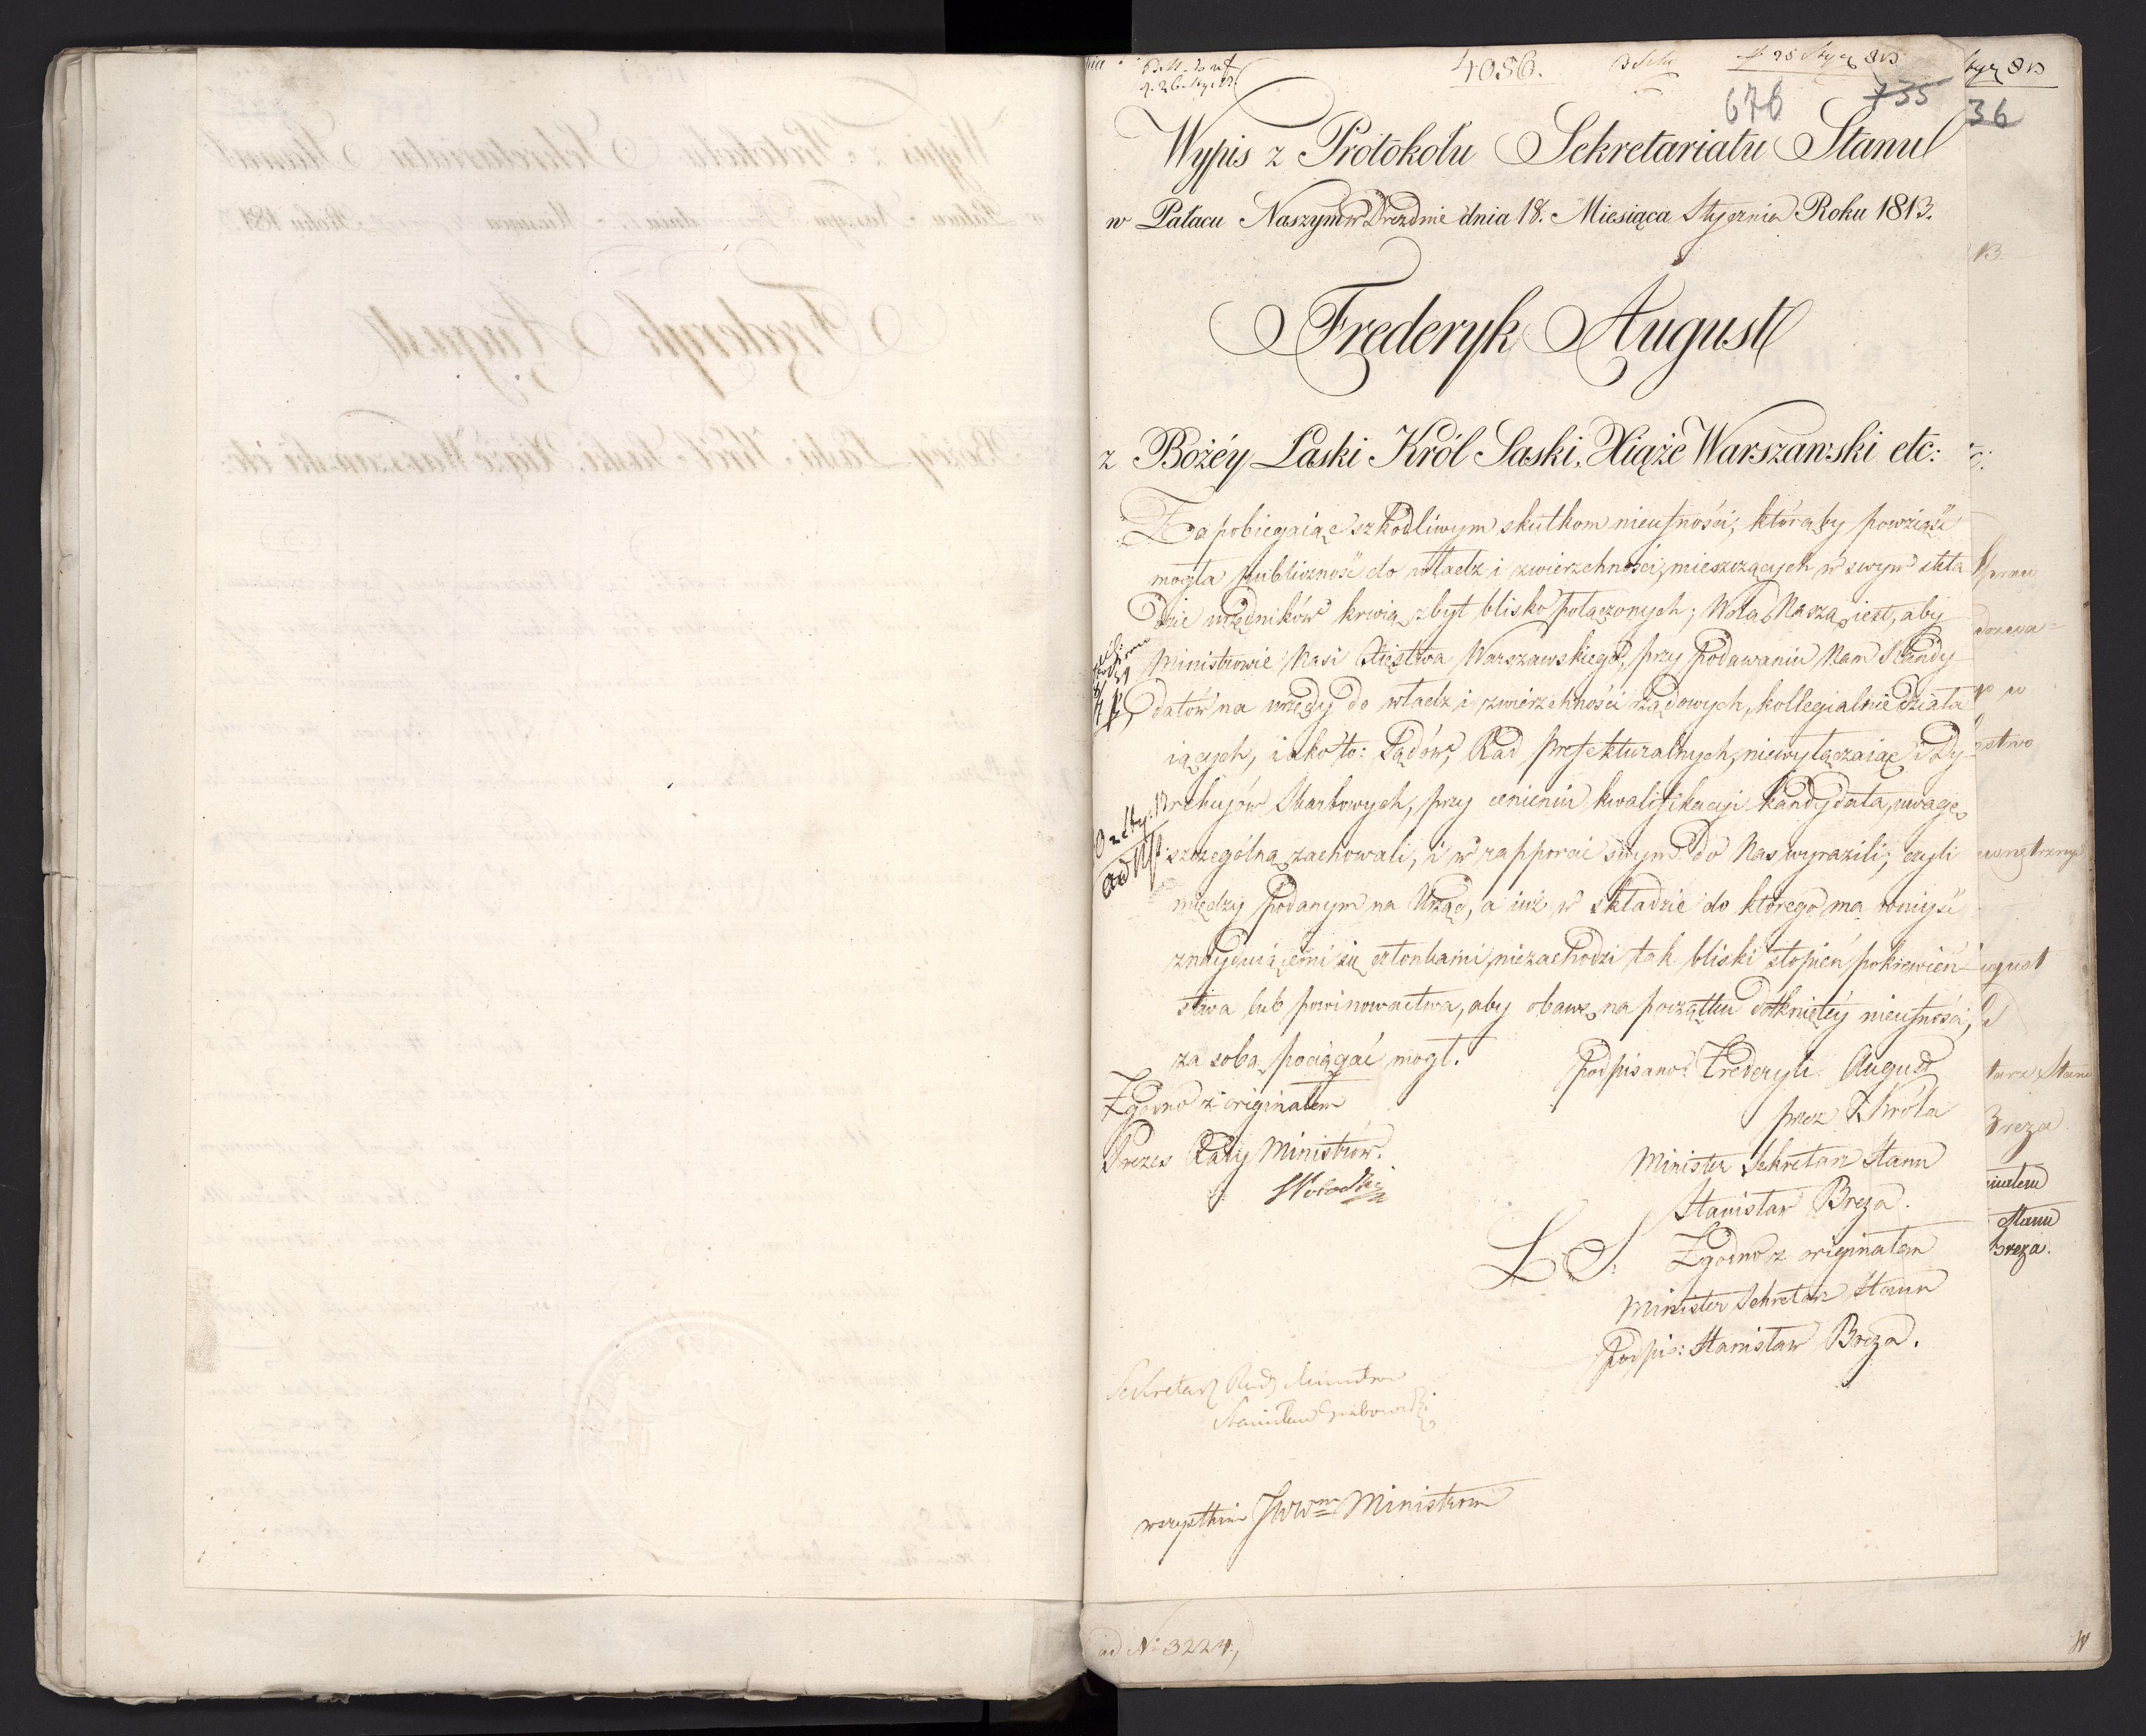 4056.
d. 25 Stycz 813
676
755
36
Wypis z Protokołu Sekretariatu Stanu
w Pałacu Naszym w Dreźdnie dnia 18. Miesiąca Stycznia Roku 1813.
Frederyk August
z Bożéy Łaski Król Saski, Xiąże Warszawski etc:
Zapobiegaiąc szkodliwym skutkom nieufności, którąby powziąść
mogła publiczność do władz i zwierzchności, mieszczących w swym skła
dzie urzędników krwią zbyt blisko połączonych; Wolą Naszą iest, aby
Ministrowie Nasi Xięstwa Warszawskiego, przy podawaniu Nam Kandy
datów na urzędy do władz i zwierzchności rządowych, kollegialnie działa
iących, iako to: Sądów, Rad prefekturalnych, niewyłączaiąc i Dy-
rekcyów Skarbowych, przy cenieniu kwalifikacyi kandydata, uwagę
szczególną zachowali, i w rapporcie swym do Nas wyrazili, czyli
między podanym na Urząd, a iuż w składzie do którego ma wniyść
znayduiącemi się członkami, niezachodzi tak bliski stopień pokrewień-
stwa lub powinowactwa, aby obawę na początku dotkniętéy nieufności,
za sobą pociągać mogł.
podpisano: Frederyk August
Zgodno z originałem
przez Króla
Prezes Rady Ministrów.
Minister Sekretarz Stanu
Stanisław Breza.
L. S. Zgodno z originałem
Minister Sekretarz Stanu
podpis: Stanisław Breza.
Sekretarz Rady Ministrów
Stanisław Grabowski
wszystkim JWWm Ministrom
ad No 3224,